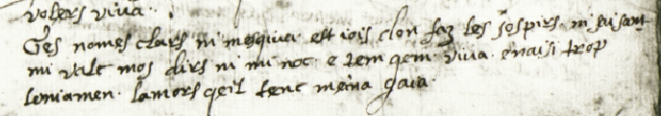 volers viva.
Ges nomes clars ni mesquiva est iois clon faz les sospirs. ni
mi valc mos dirs ni mi noc. e tem qem viva. enaisi trop
loniamen. lamors qeil tenc meina gaia.